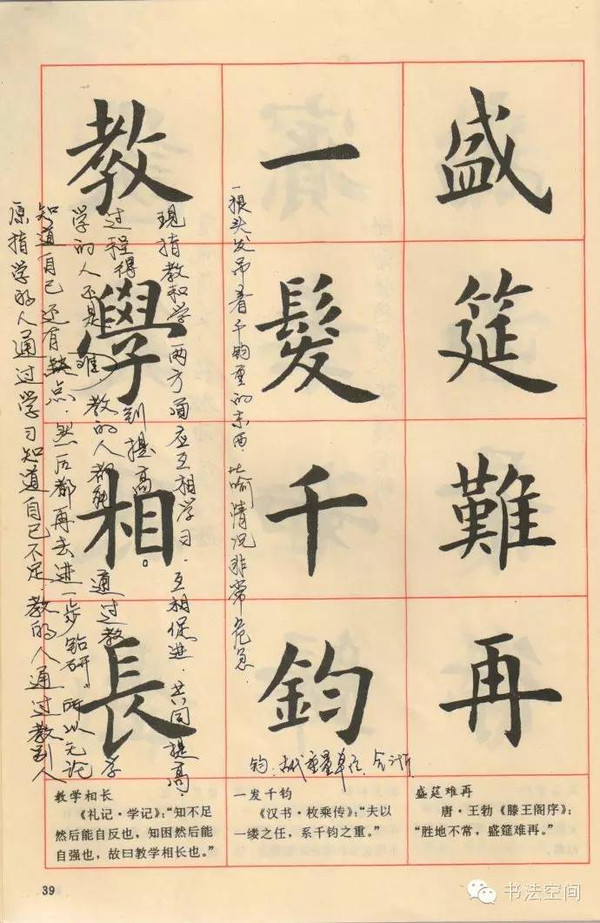 盛筵難再
一髮千鈞
教學相長
一根头发吊着千钧重的东西,比喻情况非常危急.
钧:古代重量单位,合
原指学的人通过学习知道自己不足 教的人通过教别人
知道自己还有缺点.然后都再去进一步钻研。所以无论
学的人还是教的人都能 通过教学
过程得到提高。
现指教和学两方面应互相学习.互相促进.共同提高
教学相长
《礼记·学记》:“知不足
然后能自反也,知困然后能
自强也,故曰教学相长也。”
一发千钧
《汉书·枚乘传》:“夫以
一缕之任,系千钧之重。”
盛筵难再
唐·王勃《滕王阁序》:
“胜地不常,盛筵难再。”
39
书法空间